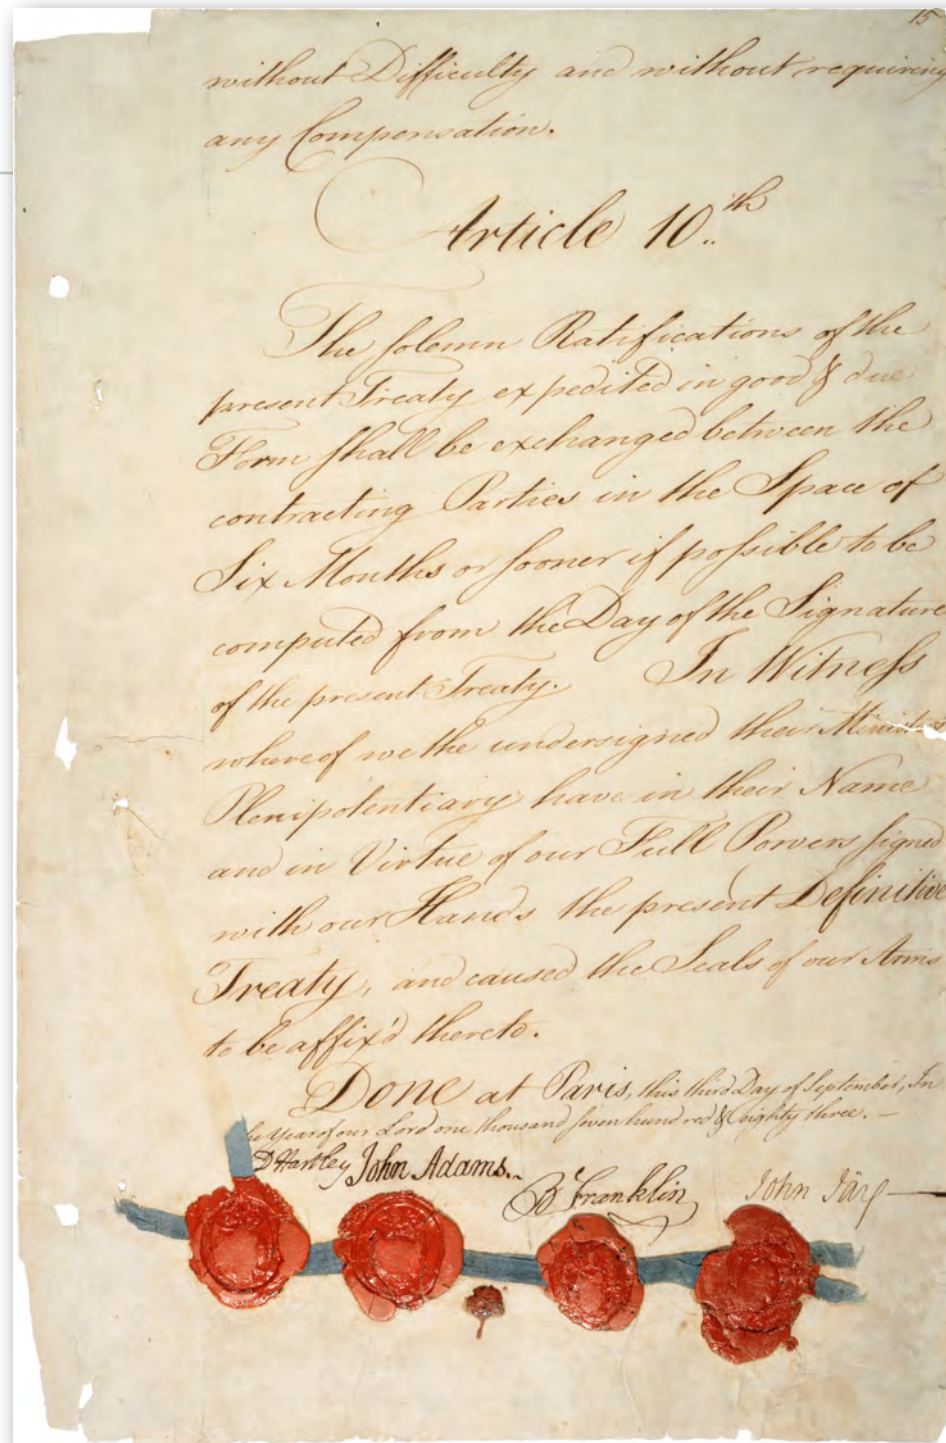 15
without Difficulty and without requiring
any Compensation.
Article 10..th
The solemn Ratifications of the
present Treaty expedited in good & due
Form shall be exchanged between the
contracting Parties in the Space of
Six Months or sooner if possible to be
computed from the Day of the Signature
of the present Treaty. In Witness
whereof we the undersigned their Ministers
Plenipotentiary have in their Name
and in Virtue of our Full Powers signed
with our Hands the present Definitive
Treaty, and caused the Seals of our Arms
to be affix'd thereto.
Done at Paris, this third Day of September, In
the Year of our Lord one thousand seven hundred & eighty three. —
D Hartley John Adams.. B Franklin John Jay —